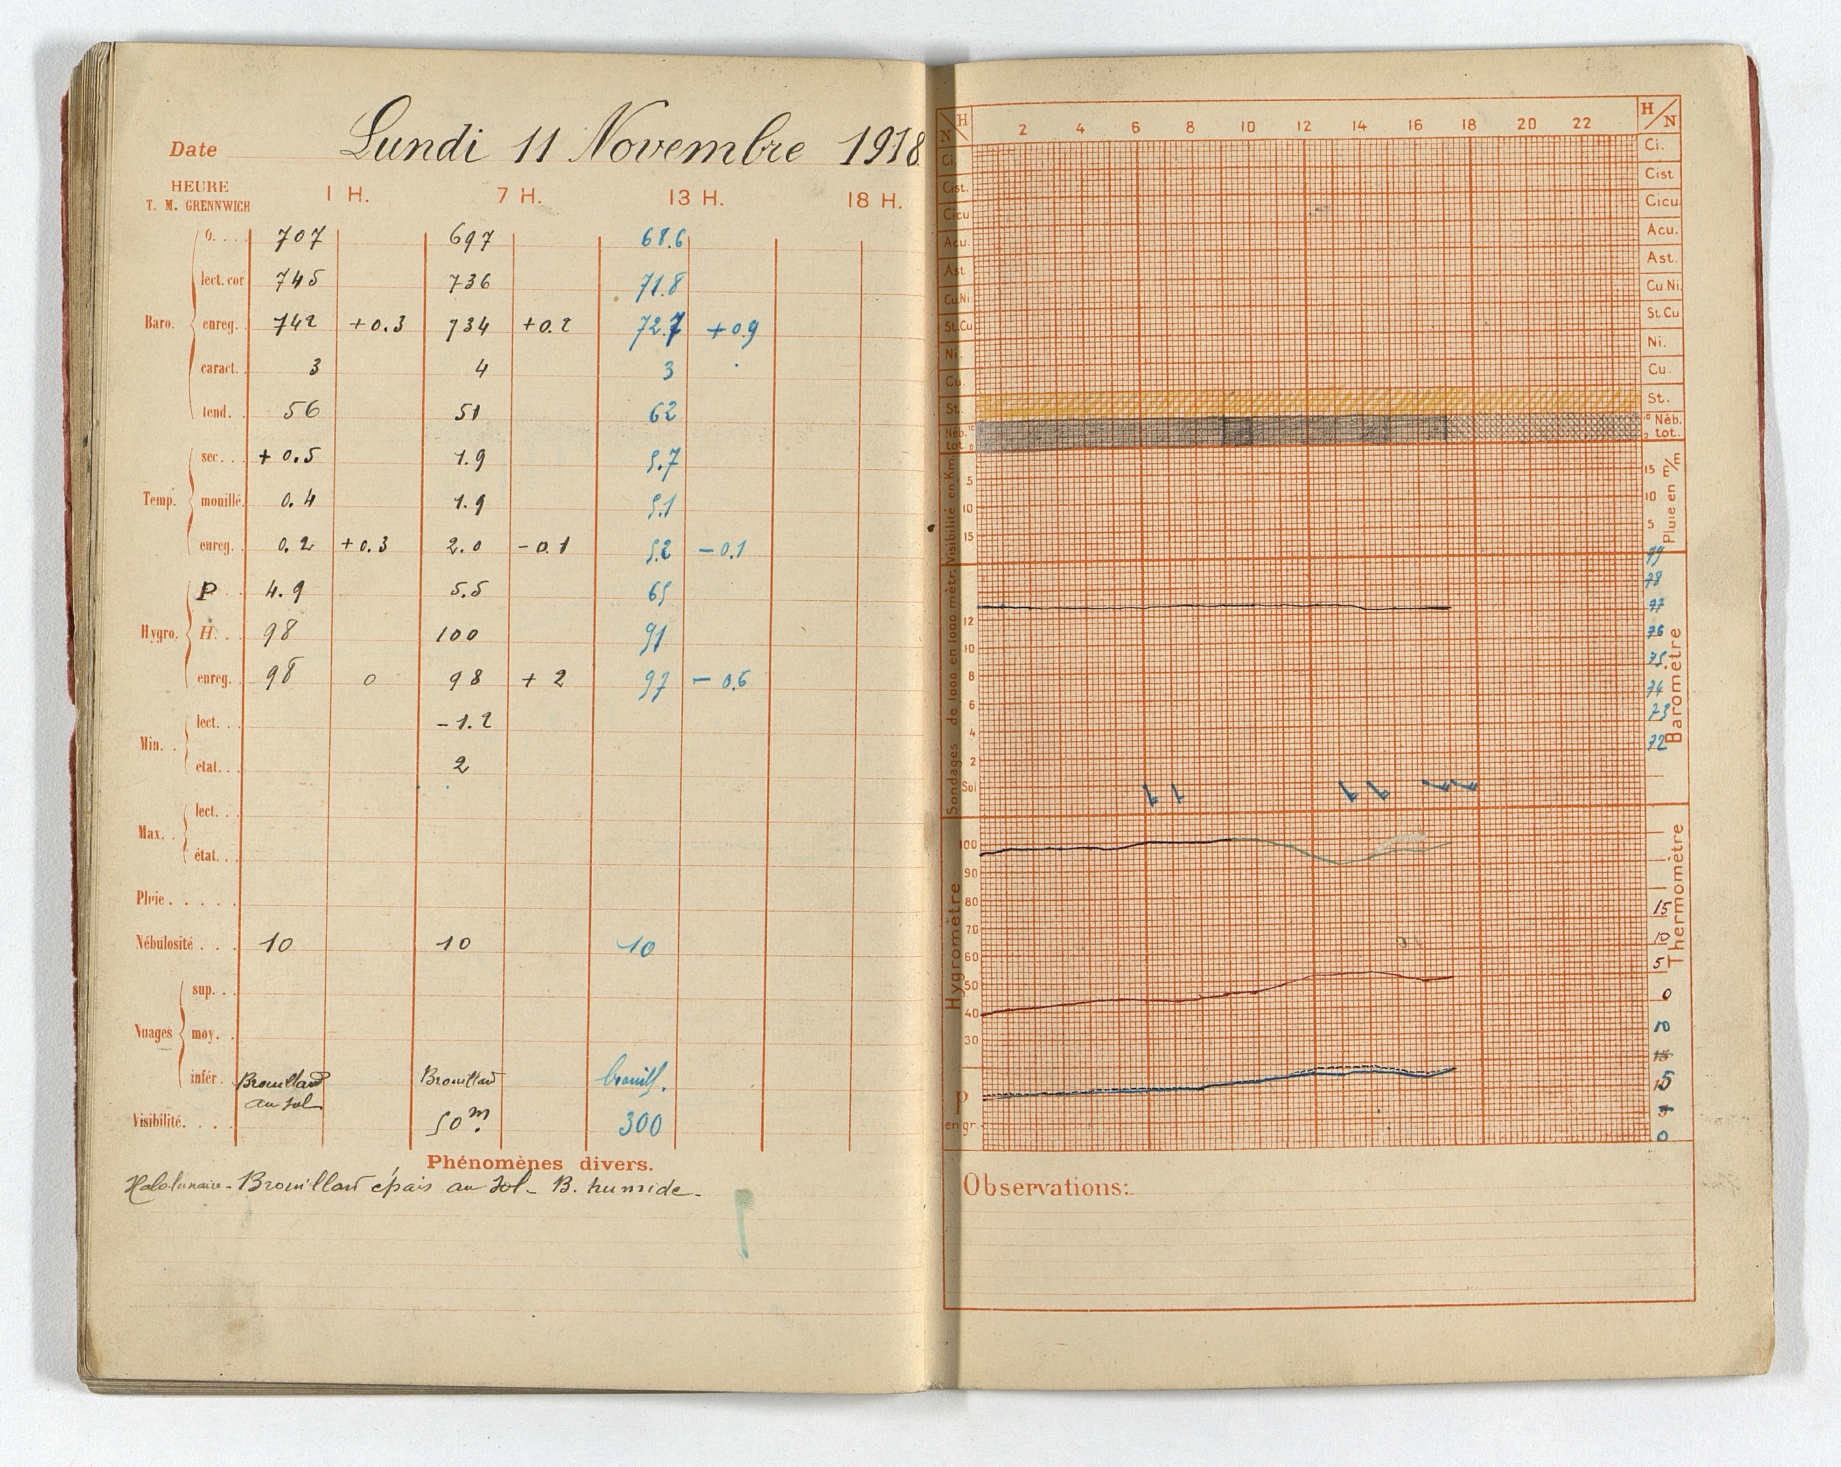 Date Lundi 11 Novembre 1918
HEURE
T. M. GRENNWICH 1 H. 7 H. 13 H. 18 H.
0. . . . 707 697 68.6
lect. cor 745 736 71.8
Baro. enreg. . 742 +0.3 734 +0.2 72.7 +0.9
caract. . 3 4 3
tend. . 56 51 62
sec. . . +0.5 1.9 5.7
Temp. mouillé. 0.4 1.9 5.1
enreg. . 0.2 +0.3 2.0 -0.1 5.2 -0.1
P . . 4.9 5.5 65
Hygro. H. . . 98 100 91
enreg. . 98 0 98 +2 97 -0.6
lect. . . -1.2
Min. . .
état. . . 2
lect. . .
Max. . .
état. . .
Pluie . . . . .
Nébulosité . . . 10 10 10
sup. . .
Nuages moy. .
infér. . Brouillard Brouillard brouill.
au sol
Visibilité. . . . 50m. 300
Phénomènes divers.
Halo lunaire - Brouillard épais au sol - B. humide -
H
N
2 4 6 8 10 12 14 16 18 20 22
H
N
Ci. Ci.
Cist. Cist
Cicu Cicu
Acu. Acu.
Ast Ast.
Cu.Ni Cu Ni.
St.Cu St.Cu
Ni. Ni.
Cu. Cu.
St. St.
Néb. 10 10 Néb.
tot. 0 tot.
Visibilité en Km
5
10
15
Pluie en m/m
15
10
5
Sondages de 1000 en 1000 mètr.
12
10
8
6
4
2
Sol
Baromètre
79
78
77
76
75
74
73
72
Hygromètre
100
90
80
70
60
50
40
30
Thermomètre
15
10
5
0
10
15
5
0
P
en gr.
Observations: